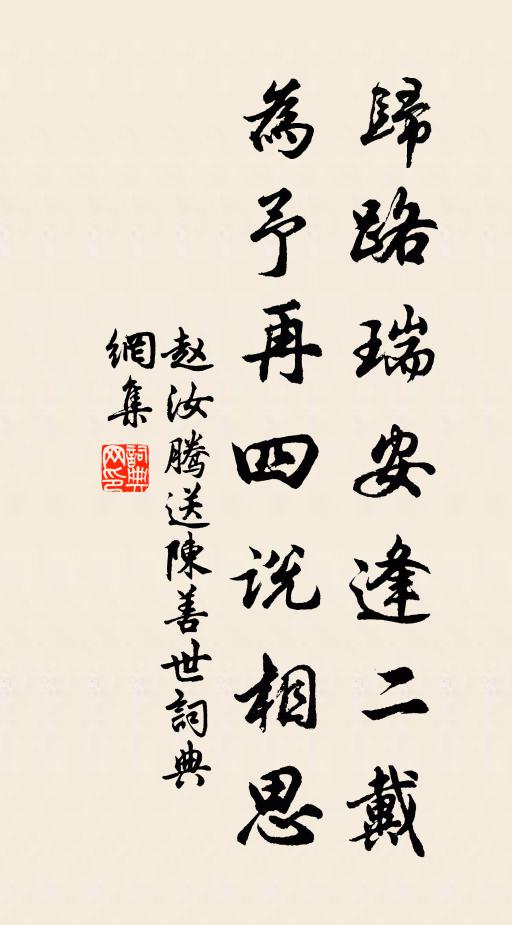 歸路瑞安逢二戴
為予再四说相思
赵汝腾送陳善世詞典
網集
詞典
网印